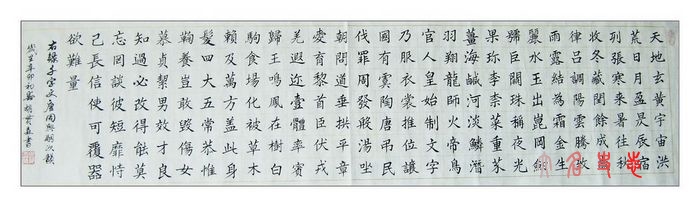 天地玄黃宇宙洪
荒日月盈昃辰宿
列張寒來暑往秋
收冬藏閏餘成歲
律呂調陽雲騰致
雨露結為霜金生
麗水玉出崑岡劍
號巨闕珠稱夜光
果珍李柰菜重芥
薑海鹹河淡鱗潛
羽翔龍師火帝鳥
官人皇始制文字
乃服衣裳推位讓
國有虞陶唐弔民
伐罪周發殷湯坐
朝問道垂拱平章
愛育黎首臣伏戎
羌遐邇壹體率賓
歸王鳴鳳在樹白
駒食場化被草木
賴及萬方蓋此身
髮四大五常恭惟
鞠養豈敢毀傷女
慕貞絜男效才良
知過必改得能莫
忘罔談彼短靡恃
己長信使可覆器
欲難量
右錄千字文唐周興嗣次韻
歲在辛卯初書